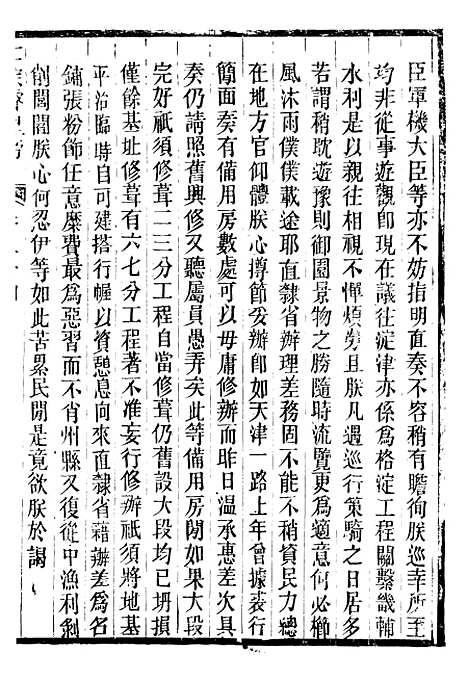 臣軍機大臣等亦不妨指明直奏不容稍有瞻徇朕巡幸所至
均非從事遊觀即現在議往淀津亦係為格淀工程關繫畿輔
水利是以親往相視不憚煩勞且朕凡遇巡行策騎之日居多
若謂稍躭遊豫則御園景物之勝隨時流覽更為適意何必櫛
風沐雨僕僕載途耶直隸省辦理差務固不能不稍貲民力總
在地方官仰體朕心撙節妥辦即如天津一路上年曾據裘行
簡面奏有備用房數處可以毋庸修辦而昨日温承惠差次具
奏仍請照舊興修又聽屬員愚弄矣此等備用房間如果大段
完好祇須修葺二三分工程自當修葺仍舊設大段均已坍損
僅餘基址修葺有六七分工程著不准妄行修辦祇須將地基
平治臨時自可建搭行幄以資憩息向來直隸省藉辦差為名
鋪張粉飾任意糜費最為惡習而不肖州縣又復從中漁利剝
削閭閻朕心何忍伊等如此苦累民閒是竟欲朕於謁